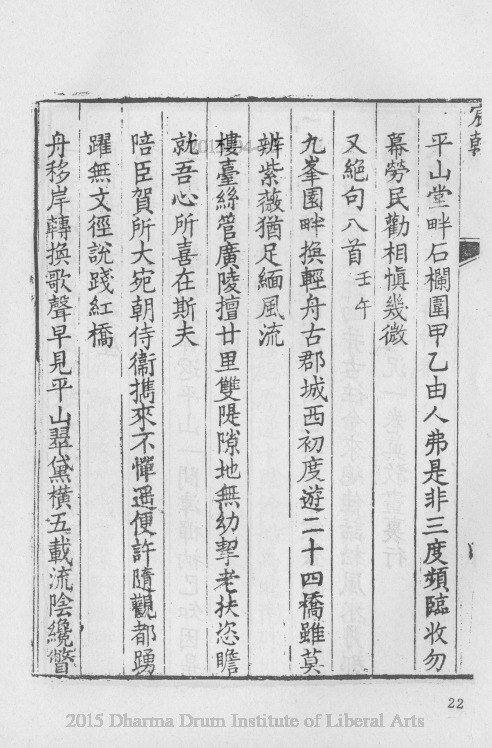 宸翰
平山堂畔石欄圍甲乙由人弗是非三度頻臨收勿
幕勞民勸相慎幾微
又絕句八首 壬午
九峯園畔換輕舟古郡城西初度遊二十四橋雖莫
辨紫薇猶足緬風流
樓臺絲管廣陵擅廿里雙隄隙地無幼挈老扶恣瞻
就吾心所喜在斯夫
陪臣賀朔大宛朝侍衞攜來不憚遙便許隨觀都踴
躍無文徑說踐紅橋
舟移岸轉換歌聲早見平山翠黛橫五載流陰纔瞥
22
2015 Dharma Drum Institute of Liberal Arts